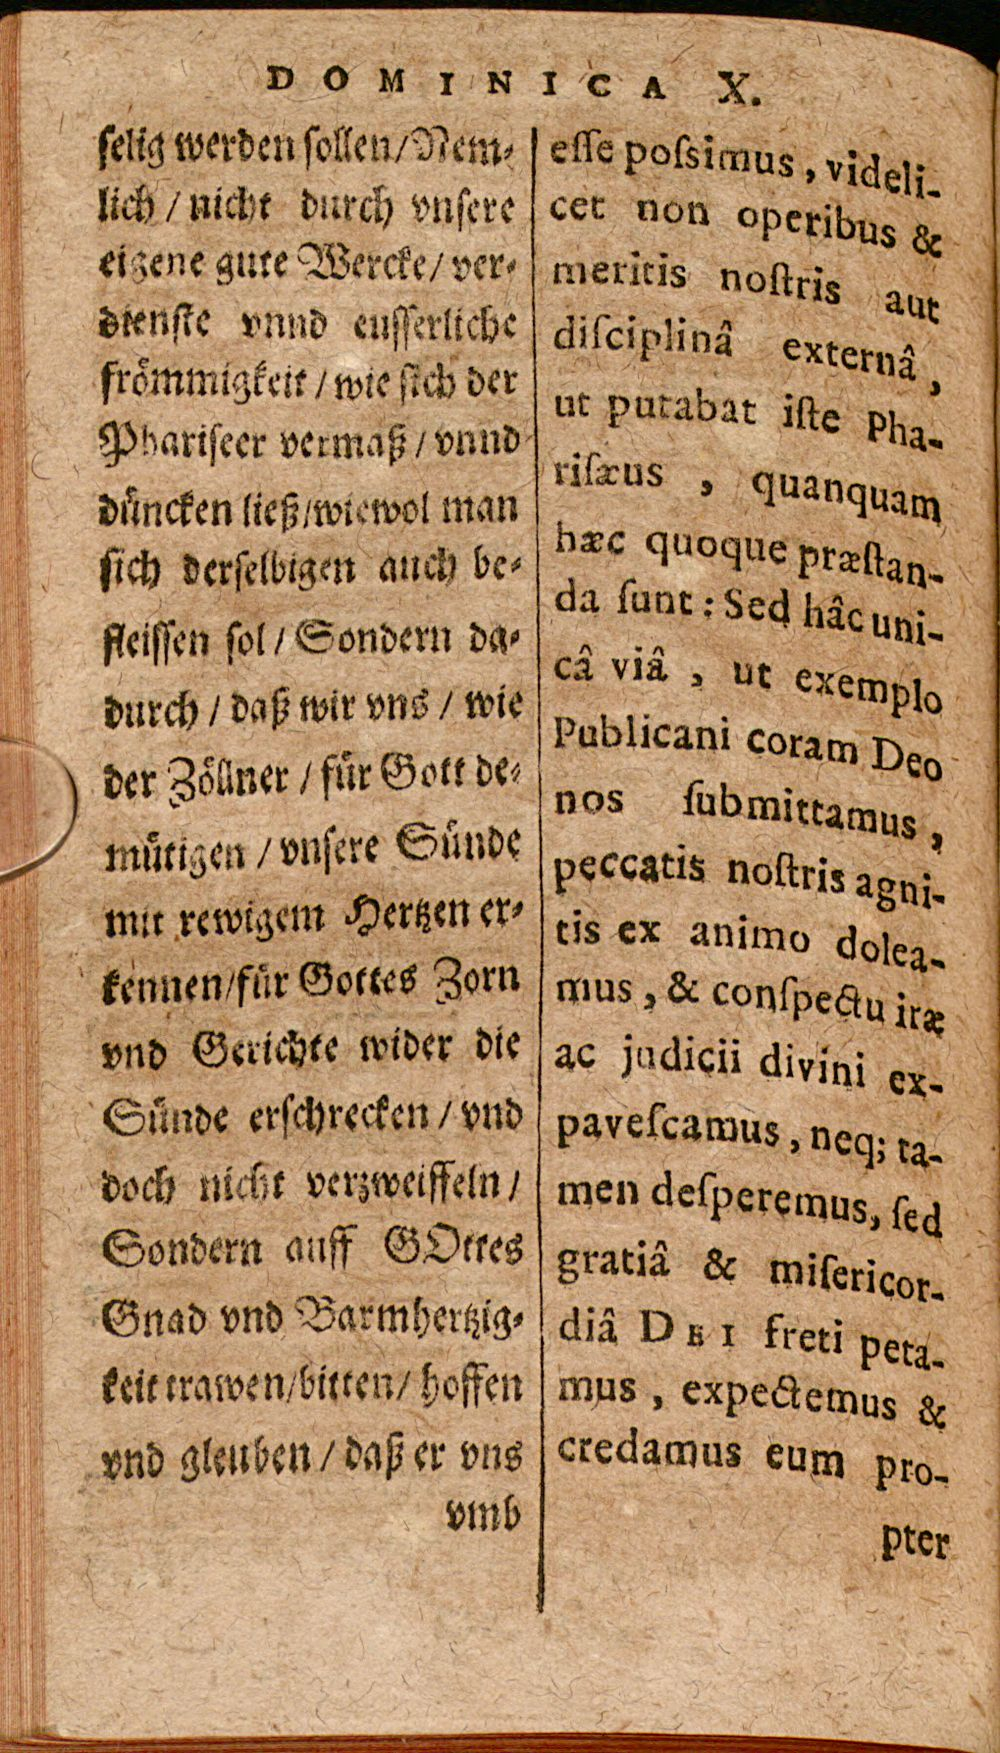 DOMINICA X.
ſelig werden ſollen/Nem⸗
lich / nicht durch vnſere
eigene gute Wercke/ ver⸗
dienſte vnnd euſſerliche
frömmigkeit / wie ſich der
Phariſeer vermaß / vnnd
düncken ließ/wiewol man
ſich derſelbigen auch be⸗
fleiſſen ſol / Sondern da⸗
durch / daß wir vns / wie
der Zöllner / für Gott de⸗
mütigen / vnſere Sünde
mit rewigem Hertzen er⸗
kennen/für Gottes Zorn
vnd Gerichte wider die
Sünde erſchrecken / vnd
doch nicht verzweiffeln /
Sondern auff GOttes
Gnad vnd Barmhertzig⸗
keit trawen/bitten/ hoffen
vnd gleuben / daß er vns
vmb
eſſe poſsimus, videli-
cet non operibus &
meritis noſtris aut
diſciplinâ externâ,
ut putabat iſte Pha-
riſæus, quanquam
hæc quoque præſtan-
da ſunt: Sed hâc uni-
câ viâ, ut exemplo
Publicani coram Deo
nos ſubmittamus,
peccatis noſtris agni-
tis ex animo dolea-
mus, & conſpectu iræ
ac judicii divini ex-
paveſcamus, neq; ta-
men deſperemus, ſed
gratiâ & miſericor-
diâ DEI freti peta-
mus, expectemus &
credamus eum pro-
pter